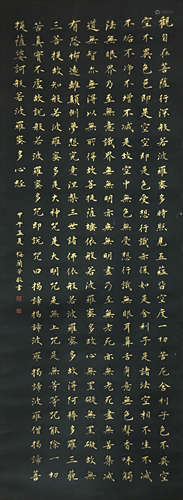 觀自在菩薩行深般若波羅蜜多時照見五蘊皆空度一切苦厄舍利子色不異空
空不異色色即是空空即是色受想行識亦復如是舍利子是諸法空相不生不滅
不垢不淨不增不減是故空中無色無受想行識無眼耳鼻舌身意無色聲香味觸
法無眼界乃至無意識界無無明亦無無明盡乃至無老死亦無老死盡無苦集滅
道無智亦無得以無所得故菩提薩埵依般若波羅蜜多故心無罣礙無罣礙故無
有恐怖遠離顛倒夢想究竟涅槃三世諸佛依般若波羅蜜多故得阿耨多羅三藐
三菩提故知般若波羅蜜多是大神咒是大明咒是無上咒是無等等咒能除一切
苦真實不虛故說般若波羅蜜多咒即說咒曰揭諦揭諦波羅揭諦波羅僧揭諦菩
提薩婆訶般若波羅蜜多心經
甲午孟夏梅蘭芳敬書